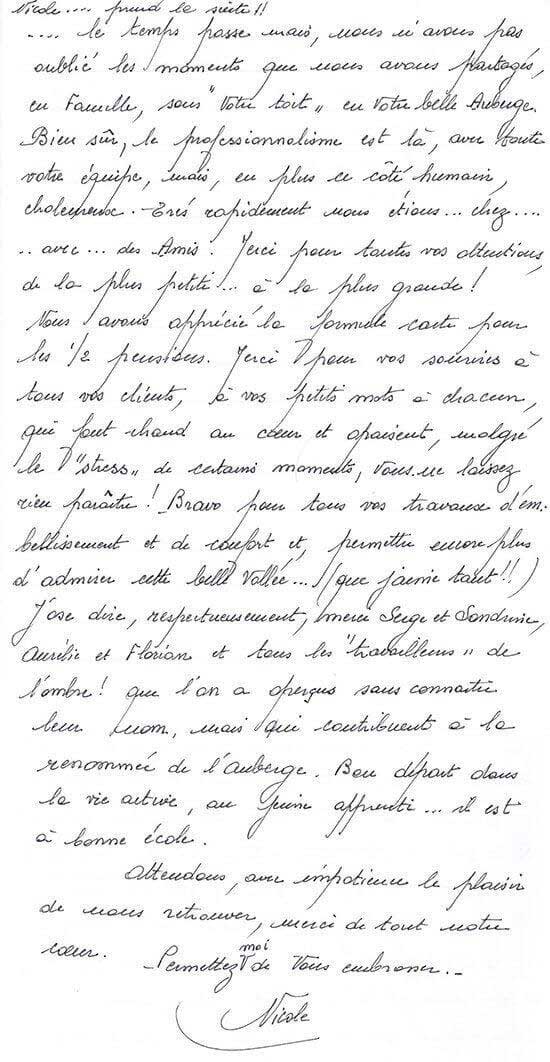 Nicole.... prend la suite !!
.... le temps passe mais, nous n'avons pas
oublié les moments que nous avons partagés,
en Famille, sous "Votre toit" en Votre belle Auberge.
Bien sûr, le professionnalisme est là, avec toute
votre équipe, mais, en plus ce côté humain,
chaleureux. - Très rapidement nous étions... chez....
.. avec... des Amis. Merci pour toutes vos attentions,
de la plus petite... à la plus grande !
Nous avons apprécié la formule carte pour
les 1/2 pensions. Merci pour vos sourires à
tous vos clients, à vos petits mots à chacun,
qui font chaud au cœur et apaisent, malgré
le "stress" de certains moments, Vous ne laissez
rien paraître ! Bravo pour tous vos travaux d'em-
bellissement et de confort et, permettre encore plus
d'admirer cette belle Vallée... (que j'aime tant !!)
J'ose dire, respectueusement, merci Serge et Sandrine,
Aurélie et Florian et tous les "travailleurs" de
l'ombre ! que l'on a aperçus sans connaître
leur nom, mais qui contribuent à la
renommée de l'Auberge. Bon départ dans
la vie active, au jeune apprenti... il est
à bonne école.
Attendons, avec impatience le plaisir
de nous retrouver, merci de tout notre
cœur. - Permettez moi de Vous embrasser. -
Nicole